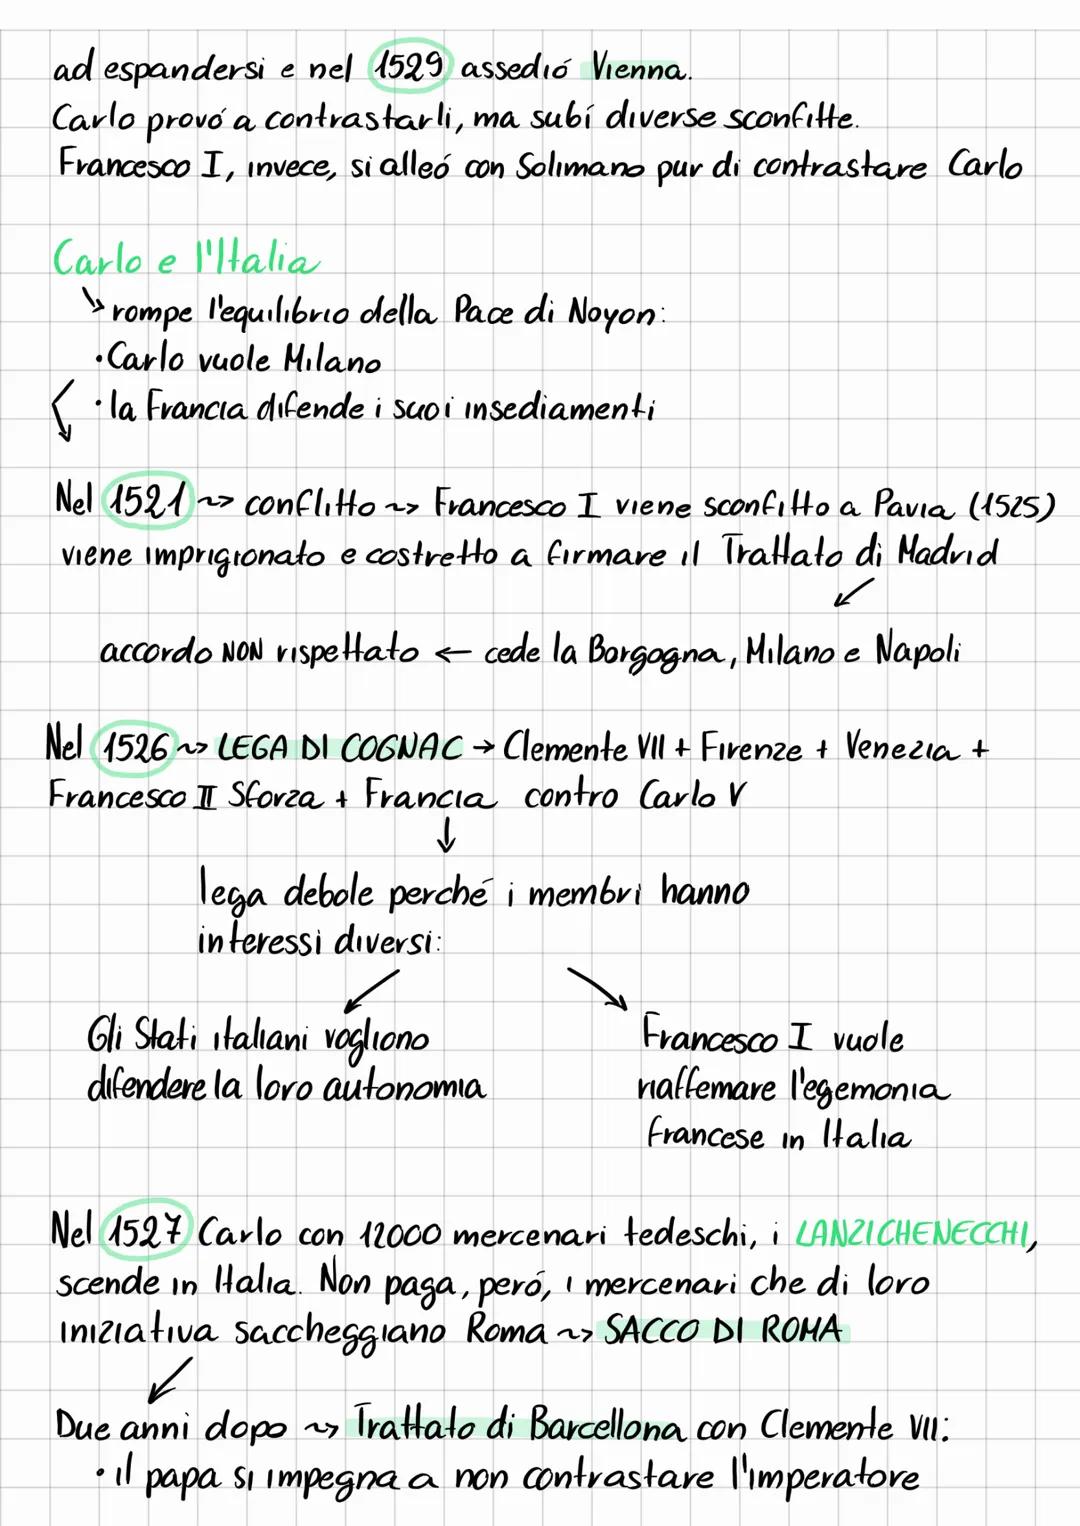 ad espandersi e nel 1529 assedió Vienna.
Carlo provó a contrastarli, ma subí diverse sconfitte.
Francesco I, invece, si alleó con Solimano pur di contrastare Carlo
Carlo e l'Italia
↘ rompe l'equilibrio della Pace di Noyon:
• Carlo vuole Milano
• la Francia difende i suoi insediamenti
Nel 1521 ~> conflitto ~> Francesco I viene sconfitto a Pavia (1525)
viene imprigionato e costretto a firmare il Trattato di Madrid
accordo NON rispettato ← cede la Borgogna, Milano e Napoli
Nel 1526 ~> LEGA DI COGNAC → Clemente VII + Firenze + Venezia +
Francesco II Sforza + Francia contro Carlo V
↓
lega debole perché i membri hanno
interessi diversi:
Gli Stati italiani vogliono
difendere la loro autonomia
Francesco I vuole
riaffemare l'egemonia
francese in Italia
Nel 1527 Carlo con 12000 mercenari tedeschi, i LANZICHENECCHI,
scende in Italia. Non paga, peró, i mercenari che di loro
iniziativa saccheggiano Roma ~> SACCO DI ROMA
Due anni dopo ~> Trattato di Barcellona con Clemente VII:
• il papa si impegna a non contrastare l'imperatore